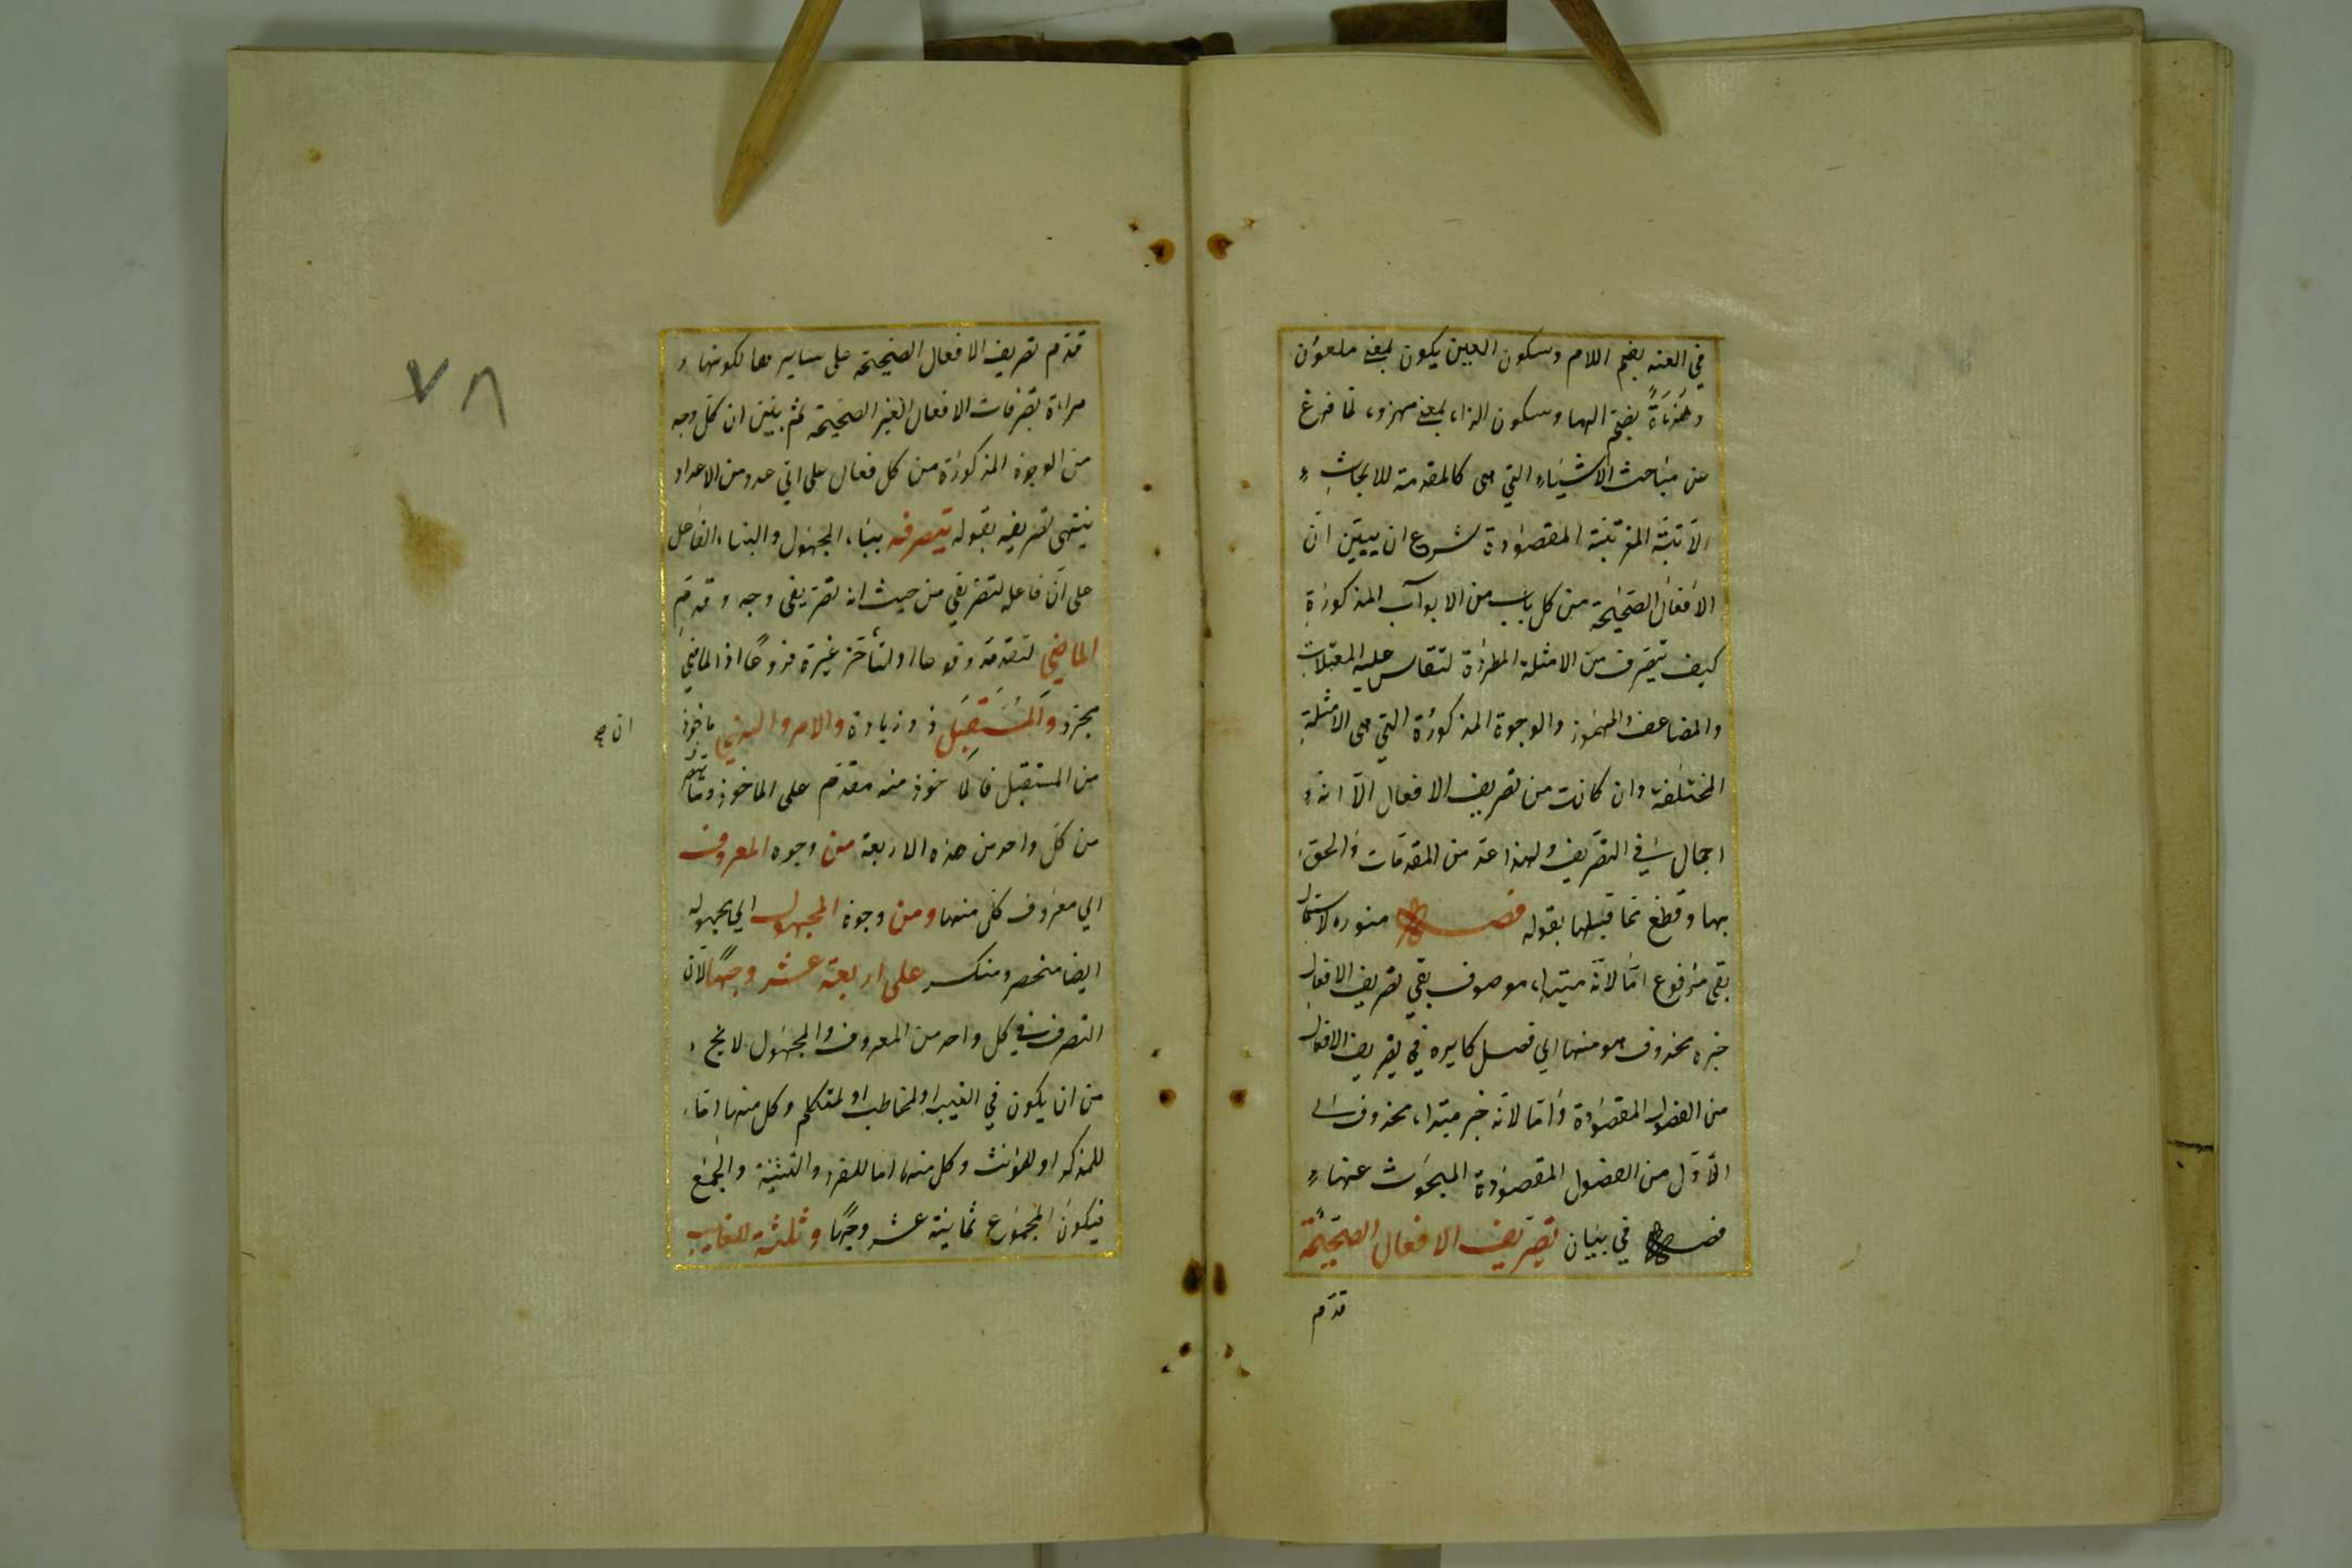 في العنه بضم اللام وسكون العين يكون بمعنى ملعون
وهزءة بضم الهاء وسكون الزاء بمعنى مهزو، لما فرغ
عن مباحث الاشياء التي هى كالمقدمة للابحاث
الآتية المقصودة شرع ان يبين ان
الافعال الصحيحة من كل باب من الابواب المذكورة
كيف تتصرف من الامثلة المطردة لتقاس عليه المعتلات
والمضاعف والمهموز والوجوه المذكورة التي هى الامثلة
المختلفة وان كانت من تصريف الافعال الا انه
اجمال في التصريف ولهذا عد من المقدمات والحق
بها وقطع عما قبلها بقوله فصل
بقى مرفوع اما لانه مبتداء موصوف بقي تصريف الافعال
خبره محذوف هو منها اي فصل كاين في تصريف الافعال
من الفصول المقصودة واما لانه خبر مبتداء محذوف اى
الاول من الفصول المقصودة المبحوث عنها
فصل في بيان تصريف الافعال الصحيحة
قدم
قدم تصريف الافعال الصحيحة على ساير ها لكونها
مراءة تصرفات الافعال الغير الصحيحة ثم بين ان كل وجه
من الوجوه المذكورة من كل فعال على اي عدد من الاعداد
ينتهى تصريفه بقوله تتصرف بيناء المجهول والبناء الفاعل
على ان فاعله لتصريفي من حيث انه تصريفى وجه وقدم
الماضي لتقدمه وقوعا او لتأخر غيره فروعا اذ الماضي
مجرد والمستقبل ذو زيادة والامر والنهي ماخوذ
من المستقبل فالماخوذ منه مقدم على الماخوذ
من كل واحد من هذه الاربعة من وجوه المعروف
اي معروف كل منها ومن وجوه المجهول اي مجهوله
ايضا منحصر على اربعة عشر وجها لان
التصرف في كل واحد من المعروف والمجهول لا يخ
من ان يكون في الغيب او لمخاطب او لمتكلم وكل منها اما
للمذكر او للمؤنث وكل منها اما للمفرد والتثنية والجمع
فيكون المجموع ثمانية عشر وجها وثلثة للغايب
٧٨